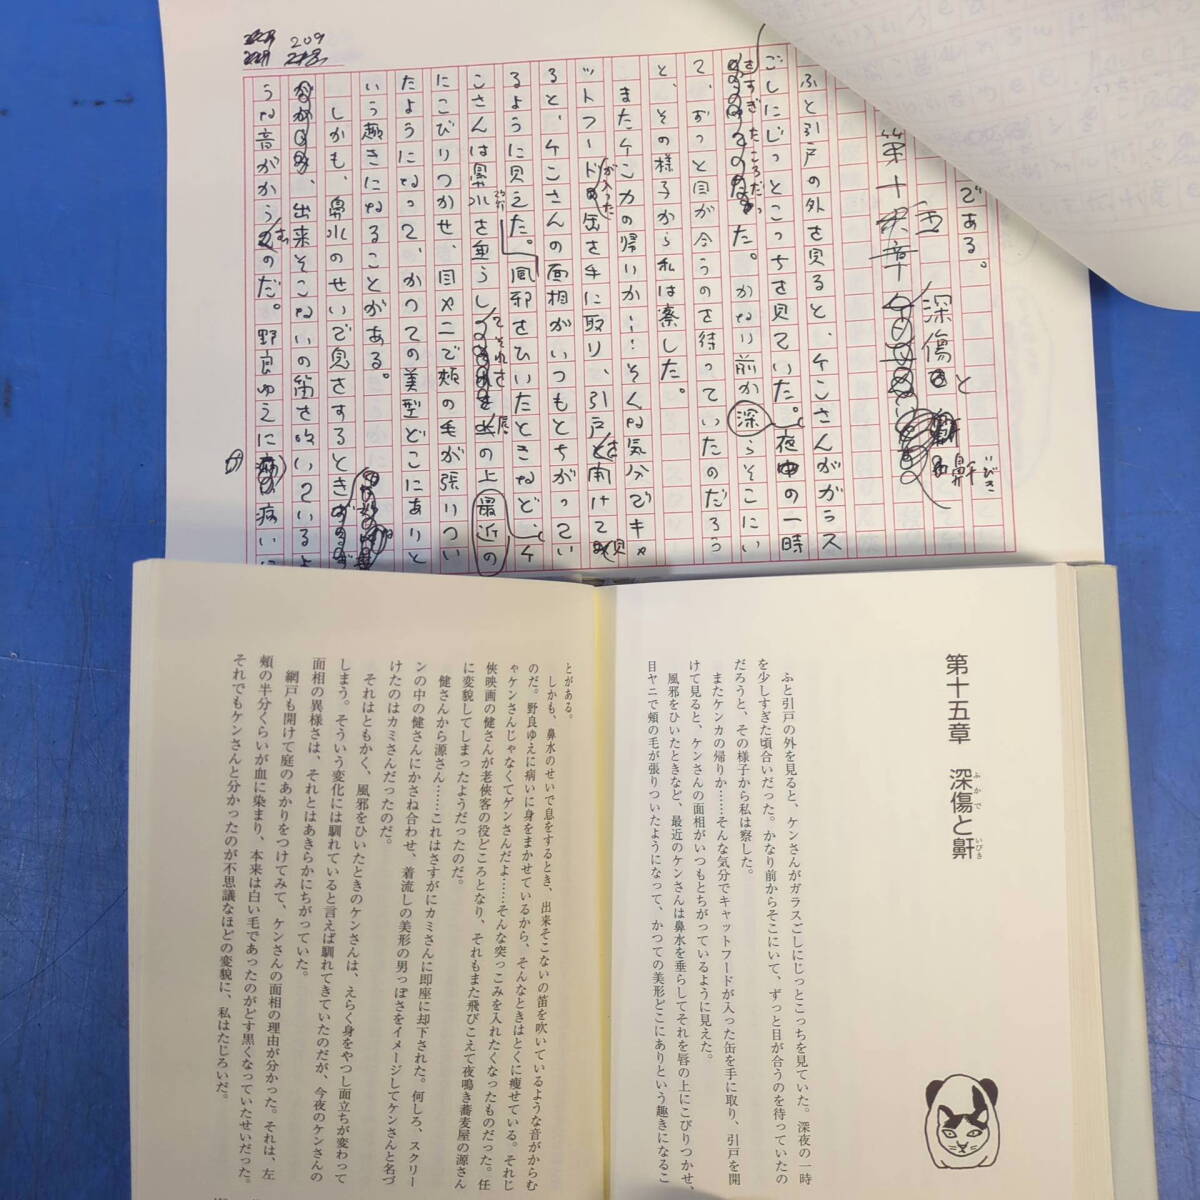 209
である。
第十五章 深傷と鼾
いびき
ふと引戸の外を見ると、ケンさんがガラス
ごしにじっとこっちを見ていた。夜中の一時
をすぎたころだっ
た。かなり前から深そこにい
て、ずっと目が合うのを待っていたのだろう
と、その様子から私は察した。
またケンカの帰りか……そんな気分でキャ
ットフードが入った缶を手に取り、引戸を開けて見
ると、ケンさんの面相がいつもとちがってい
るように見えた。風邪をひいたときなど、ケ
ンさんは鼻水を垂らしてそれを唇の上最近の
にこびりつかせ、目ヤニで頬の毛が張りつい
たようになって、かつての美型どこにありと
いう趣きになることがある。
しかも、鼻水のせいで息をするとき
、出来そこないの笛を吹いているよ
うな音がからむのだ。野良ゆえに病いに
第十五章 深傷と鼾
ふかで
いびき
ふと引戸の外を見ると、ケンさんがガラスごしにじっとこっちを見ていた。深夜の一時
を少しすぎた頃合いだった。かなり前からそこにいて、ずっと目が合うのを待っていたの
だろうと、その様子から私は察した。
またケンカの帰りか……そんな気分でキャットフードが入った缶を手に取り、引戸を開
けて見ると、ケンさんの面相がいつもとちがっているように見えた。
風邪をひいたときなど、最近のケンさんは鼻水を垂らしてそれを唇の上にこびりつかせ、
目ヤニで頬の毛が張りついたようになって、かつての美形どこにありという趣きになるこ
とがある。
しかも、鼻水のせいで息をするとき、出来そこないの笛を吹いているような音がからむ
のだ。野良ゆえに病いに身をまかせているから、そんなときはとくに瘦せている。それじ
ゃケンさんじゃなくてゲンさんだよ……そんな突っこみを入れたくなったものだった。任
俠映画の健さんが老俠客の役どころとなり、それもまた飛びこえて夜鳴き蕎麦屋の源さん
に変貌してしまったようだったのだ。
健さんから源さん……これはさすがにカミさんに即座に却下された。何しろ、スクリー
ンの中の健さんにかさね合わせ、着流しの美形の男っぽさをイメージしてケンさんと名づ
けたのはカミさんだったのだ。
それはともかく、風邪をひいたときのケンさんは、えらく身をやつし面立ちが変わって
しまう。そういう変化には馴れていると言えば馴れてきていたのだが、今夜のケンさんの
面相の異様さは、それとはあきらかにちがっていた。
網戸も開けて庭のあかりをつけてみて、ケンさんの面相の理由が分かった。それは、左
頬の半分くらいが血に染まり、本来は白い毛であったのがどす黒くなっていたせいだった。
それでもケンさんと分かったのが不思議なほどの変貌に、私はたじろいだ。